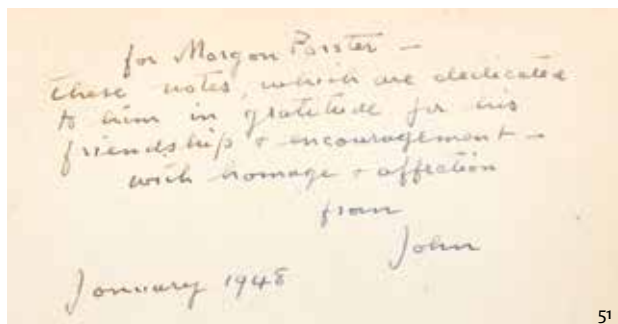 for Morgan Forster –
these notes, which are dedicated
to him in gratitude for his
friendship + encouragement –
with homage + affection
from
John
January 1948
51